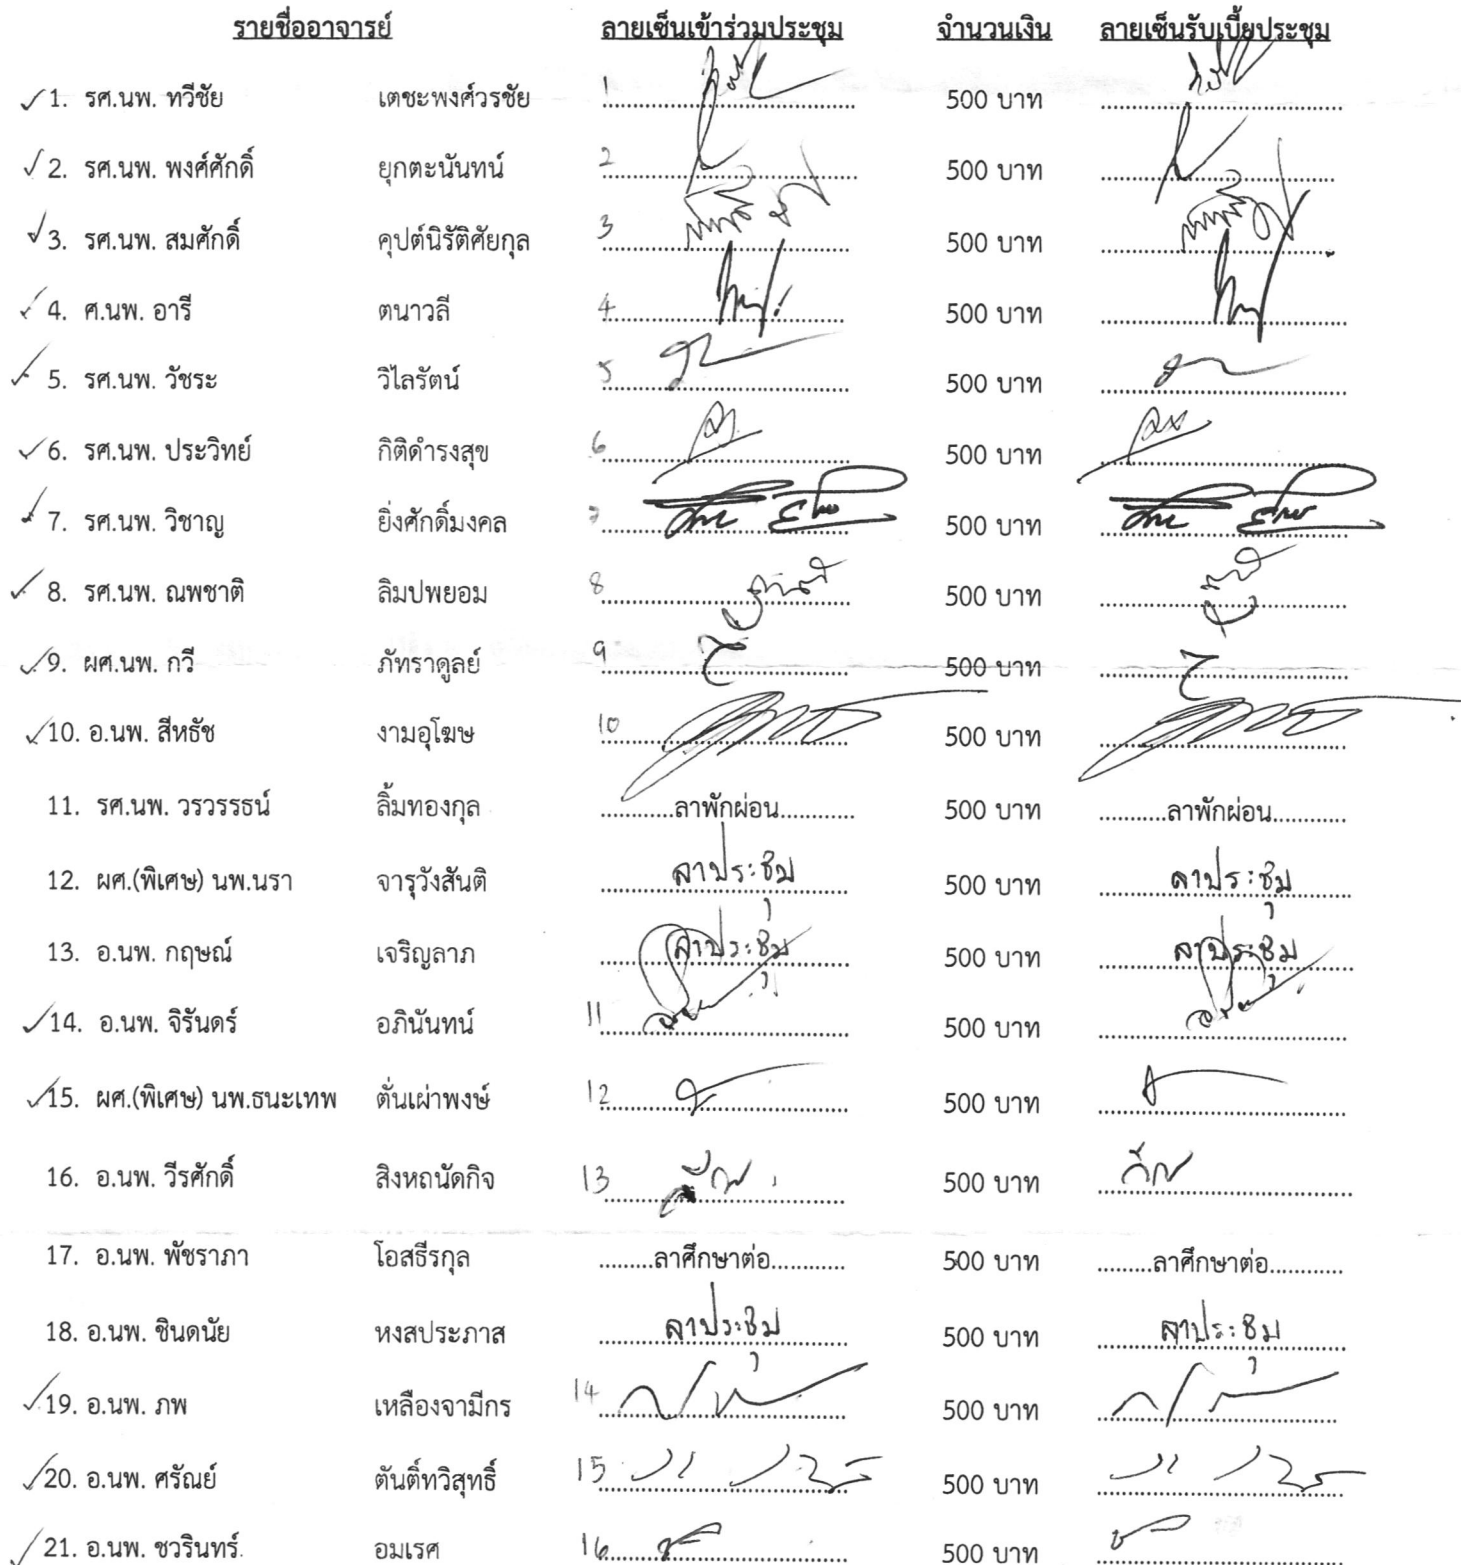 รายชื่ออาจารย์ ลายเซ็นเข้าร่วมประชุม จำนวนเงิน ลายเซ็นรับเบี้ยประชุม
1. รศ.นพ. ทวีชัย เตชะพงศ์วรชัย 1 500 บาท
2. รศ.นพ. พงศ์ศักดิ์ ยุกตะนันทน์ 2 500 บาท
3. รศ.นพ. สมศักดิ์ คุปต์นิรัติศัยกุล 3 500 บาท
4. ศ.นพ. อารี ตนาวลี 4 500 บาท
5. รศ.นพ. วัชระ วิไลรัตน์ 5 500 บาท
6. รศ.นพ. ประวิทย์ กิติดำรงสุข 6 500 บาท
7. รศ.นพ. วิชาญ ยิ่งศักดิ์มงคล 7 500 บาท
8. รศ.นพ. ณพชาติ ลิมปพยอม 8 500 บาท
9. ผศ.นพ. กวี ภัทราดูลย์ 9 500 บาท
10. อ.นพ. สีหธัช งามอุโฆษ 10 500 บาท
11. รศ.นพ. วรวรรธน์ ลิ้มทองกุล ลาพักผ่อน 500 บาท ลาพักผ่อน
12. ผศ.(พิเศษ) นพ.นรา จารุวังสันติ ลาประชุม 500 บาท ลาประชุม
13. อ.นพ. กฤษณ์ เจริญลาภ ลาประชุม 500 บาท ลาประชุม
14. อ.นพ. จิรันดร์ อภินันทน์ 11 500 บาท
15. ผศ.(พิเศษ) นพ.ธนะเทพ ตั่นเผ่าพงษ์ 12 500 บาท
16. อ.นพ. วีรศักดิ์ สิงหถนัดกิจ 13 500 บาท
17. อ.นพ. พัชราภา โอสธีรกุล ลาศึกษาต่อ 500 บาท ลาศึกษาต่อ
18. อ.นพ. ชินดนัย หงสประภาส ลาประชุม 500 บาท ลาประชุม
19. อ.นพ. ภพ เหลืองจามีกร 14 500 บาท
20. อ.นพ. ศรัณย์ ตันติ์ทวิสุทธิ์ 15 500 บาท
21. อ.นพ. ชวรินทร์ อมเรศ 16 500 บาท